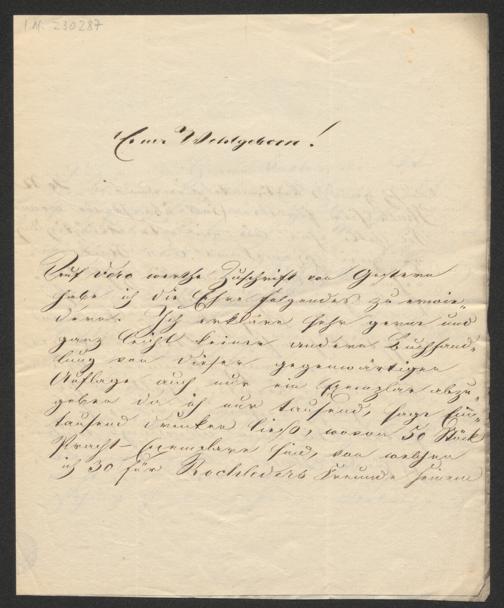 I.N. 230287
Euer Wohlgeboren!
Auf dero werthe Zuschrift von Gestern
habe ich die Ehre folgendes zu erwie-
dern. Ich erkläre sehr gerne und
ganz leicht keiner andern Buchhand-
lung von dieser gegenwärtigen
Auflage auch nur ein Exemplar abzu-
geben da ich nur tausend, sage Ein-
tausend drucken ließ, wovon 50 Stück
Pracht-Exemplare sind, von welchen
ich 30 für Rochleders Freunde